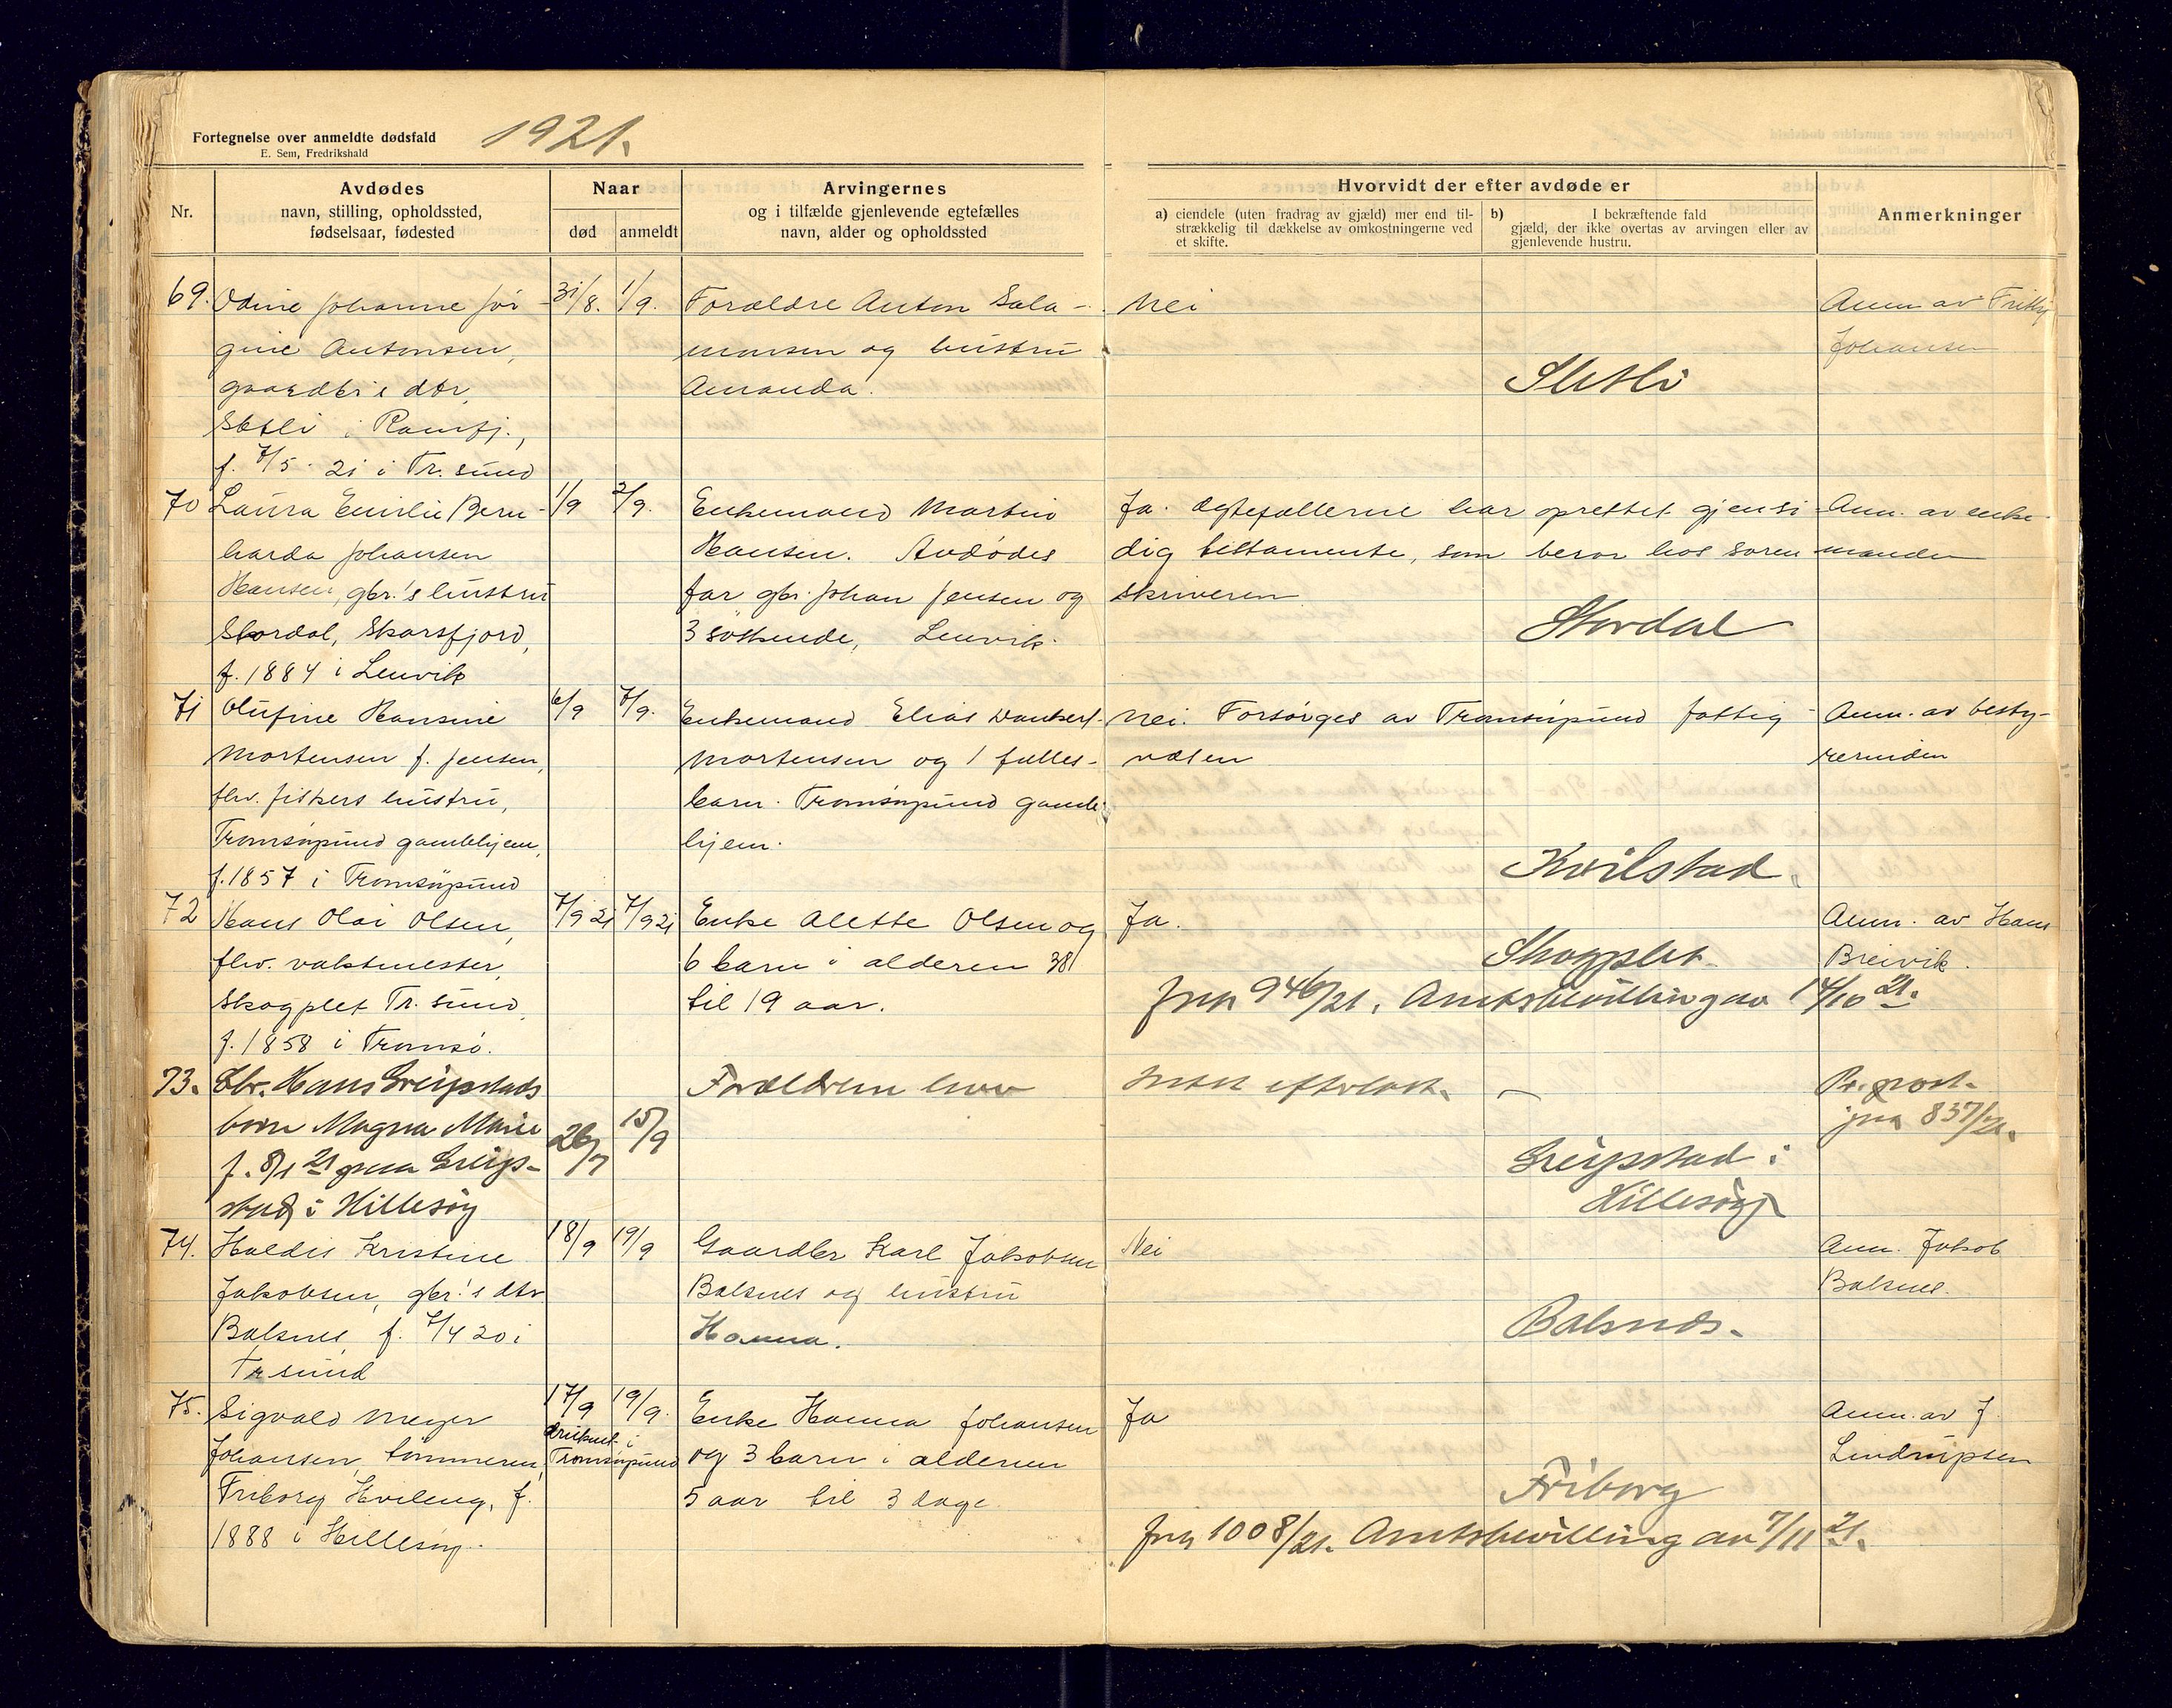 Fortegnelse over anmeldte dødsfald
E. Sem, Fredrikshald
1921.
Nr.
Avdødes
navn, stilling, opholdssted,
fødselsaar, fødested
Naar
død
anmeldt
Arvingernes
og i tilfælde gjenlevende egtefælles
navn, alder og opholdssted
Hvorvidt der efter avdøde er
a) eiendele (uten fradrag av gjæld) mer end til-
strækkelig til dækkelse av omkostningerne ved
et skifte.
b) I bekræftende fald
gjæld, der ikke overtas av arvingen eller av
gjenlevende hustru.
Anmerkninger
69. Odine Johanne Jør-
gine Antonsen,
gaardbr's dtr,
Sletli i Ramfj.,
f. 7/5. 21 i Tr.sund
31/8. 1/9.
Forældre Anton Sala-
monsen og hustru
Amanda.
Nei
Sletli
Anm. av
Johansen
70 Laura Emilie Bern-
harda Johansen
Hansen, gbr.'s hustru
Stordal, Skarsfjord,
f. 1884 i Lenvik
1/9 2/9.
Enkemand Martin
Hansen. Avdødes
far gbr. Johan Jensen og
3 søskende, Lenvik.
Ja. Egtefællerne har oprettet gjensi-
dig testamente, som beror hos soren-
skriveren
Stordal
Anm. av enke-
manden
71 Olufine Hansine
Mortensen f. Jensen,
fhv. fiskers hustru,
Tromsøysund gamlehjem,
f. 1857 i Tromsøysund
6/9 7/9.
Enkemand Elias
Mortensen og 1 fælles-
barn. Tromsøysund gamle-
hjem.
Nei. Forsørges av Tromsøysund fattig-
væsen
Kvilstad.
Anm. av besty-
rerinden
72 Hans Olai Olsen,
fhv. vaktmester,
Skogplet Tr.sund,
f. 1858 i Tromsø.
7/9 21 7/9 21
Enke Alette Olsen og
6 barn i alderen 38
til 19 aar.
Ja.
Skogplet
Jnr 946/21. Amtsbevilling av 14/10 21.
Anm. av Hans
Breivik.
73. Gbr. Hans Greipstads
barn Magna Marie
f. 8/1 21 paa Greip-
stad i Hillesøy
26/7 15/9
Forældrene lever
Intet efterlatt. –
Greipstad i
Hillesøy
jnr 837/21.
74. Haldis Kristine
Jakobsen, gbr.'s dtr
Balsnes, f. 7/4 20 i
Tr.sund
18/9 19/9
Gaardbr Karl Jakobsen
Balsnes og hustru
Hanna.
Nei
Balsnes.
Anm. Jakob
Balsnes.
75. Sigvald Meyer
Johansen, tømmerm,
Friborg Hvileng, f.
1888 i Hillesøy.
17/9 19/9.
druknet i
Tromsøysund
Enke Hanna Johansen
og 3 barn i alderen
5 aar til 3 dage.
Ja
Friborg
Jnr 1008/21. Amtsbevilling av 7/11 21.
Anm. av J.
Lindrupsen